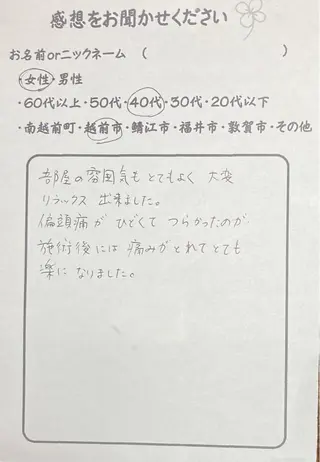 感想をお聞かせください
お名前orニックネーム （ ）
・女性・男性
・60代以上・50代・40代・30代・20代以下
・南越前町・越前市・鯖江市・福井市・敦賀市・その他
部屋の雰囲気もとてもよく 大変
リラックス 出来ました。
偏頭痛が ひどくて つらかったのが
施術後には 痛みがとれてとても
楽に なりました。